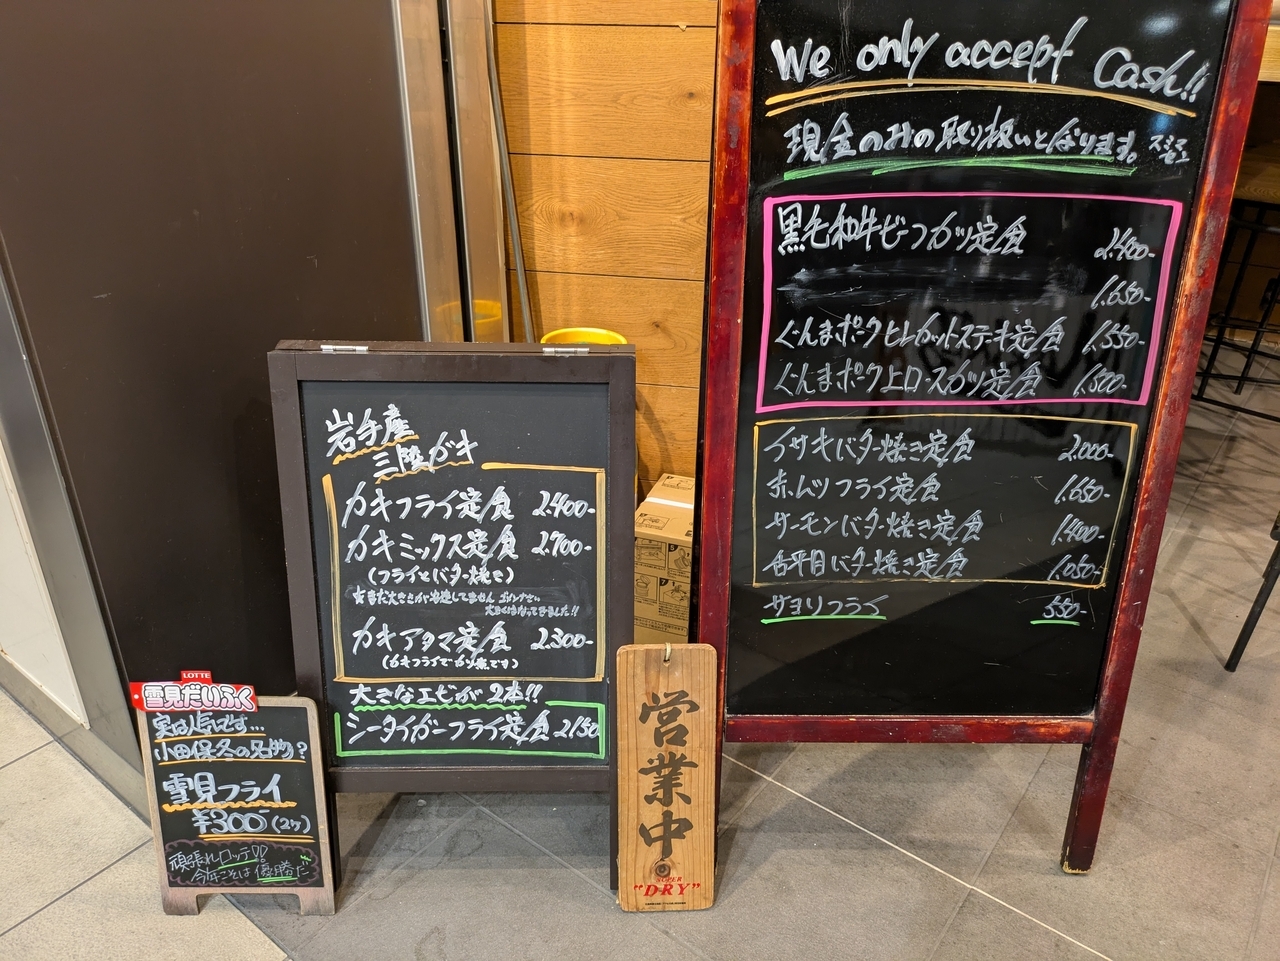 We only accept Cash!!
現金のみの取り扱いとなります。スミマセン
黒毛和牛ビーフカツ定食 2.400-
1.650-
ぐんまポークヒレカットステーキ定食 1.550-
ぐんまポーク上ロースカツ定食 1.500-
イサキバター焼き定食 2.000-
赤ムツフライ定食 1.650-
サーモンバター焼き定食 1.400-
舌平目バター焼き定食 1.050-
サヨリフライ 550-
岩手産
三陸ガキ
カキフライ定食 2.400-
カキミックス定食 2.700-
(フライとバター焼き)
大きくなってきました!!
カキアタマ定食 2.300-
(カキフライでカツ煮です)
大きなエビが2本!!
シータイガーフライ定食 2150
LOTTE
雪見だいふく
実は人気です...
小田保冬の名物?
雪見フライ
¥300-(2ケ)
頑張れロッテ!!
今年こそは優勝だ
営業中
SUPER
"DRY"